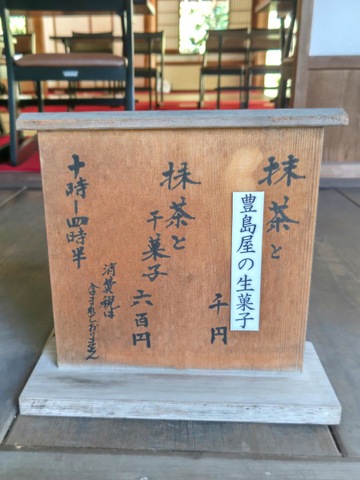 抹茶と
豊島屋の生菓子
千円
抹茶と
干菓子
六百円
十時〜四時半
消費税は
含まれておりません